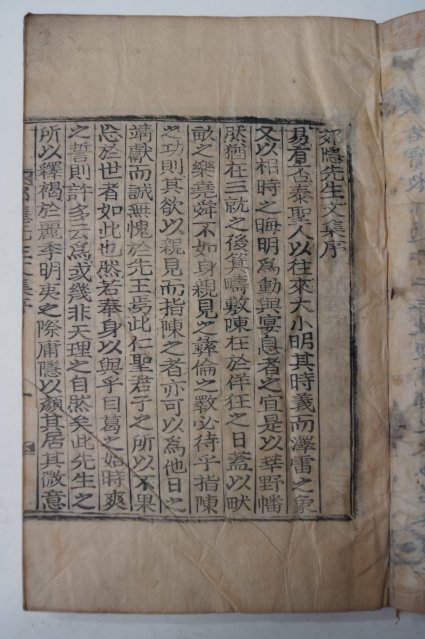 郊隱先生文集序
易有否泰聖人以往來大小明其時義而澤雷之象
又以相時之晦明為動與宴息者之宜是以莘野幡
然猶在三就之後箕疇敷陳在於佯狂之日蓋以畎
畝之樂堯舜不如身親見之彝倫之斁必待乎指陳
之功則其欲以親見而指陳之者亦可以為他日之
靖獻而誠無愧於先王焉此仁聖君子之所以不果
忘於世者如此也然若奉身以與乎自葛之始時爽
之誓則許多云為或幾非天理之自然矣此先生之
所以釋褐於麗季明夷之際庸隱以顏其居其微意